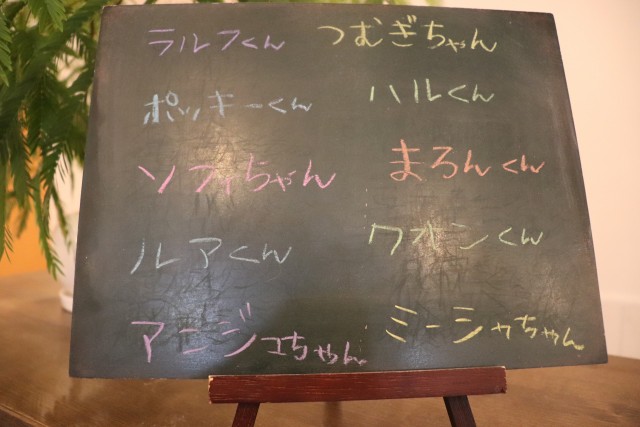 ラルフくん
つむぎちゃん
ポッキーくん
ハルくん
ソフィちゃん
まろんくん
ルアくん
クオンくん
アンジュちゃん
ミーシャちゃん